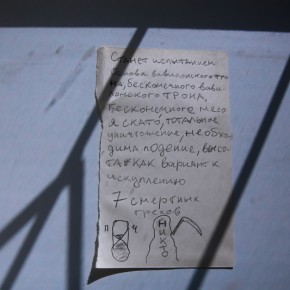 Станет испытанием
вавилонского тро
на, бесконечного вави
лонского ТРОНА,
Бесконечного мясо
я скато, тотальное
уничтожение, необхо
дима падение, высо
та как вариант к
искуплению
7 смертных
грехов
П Ч
НИКТО